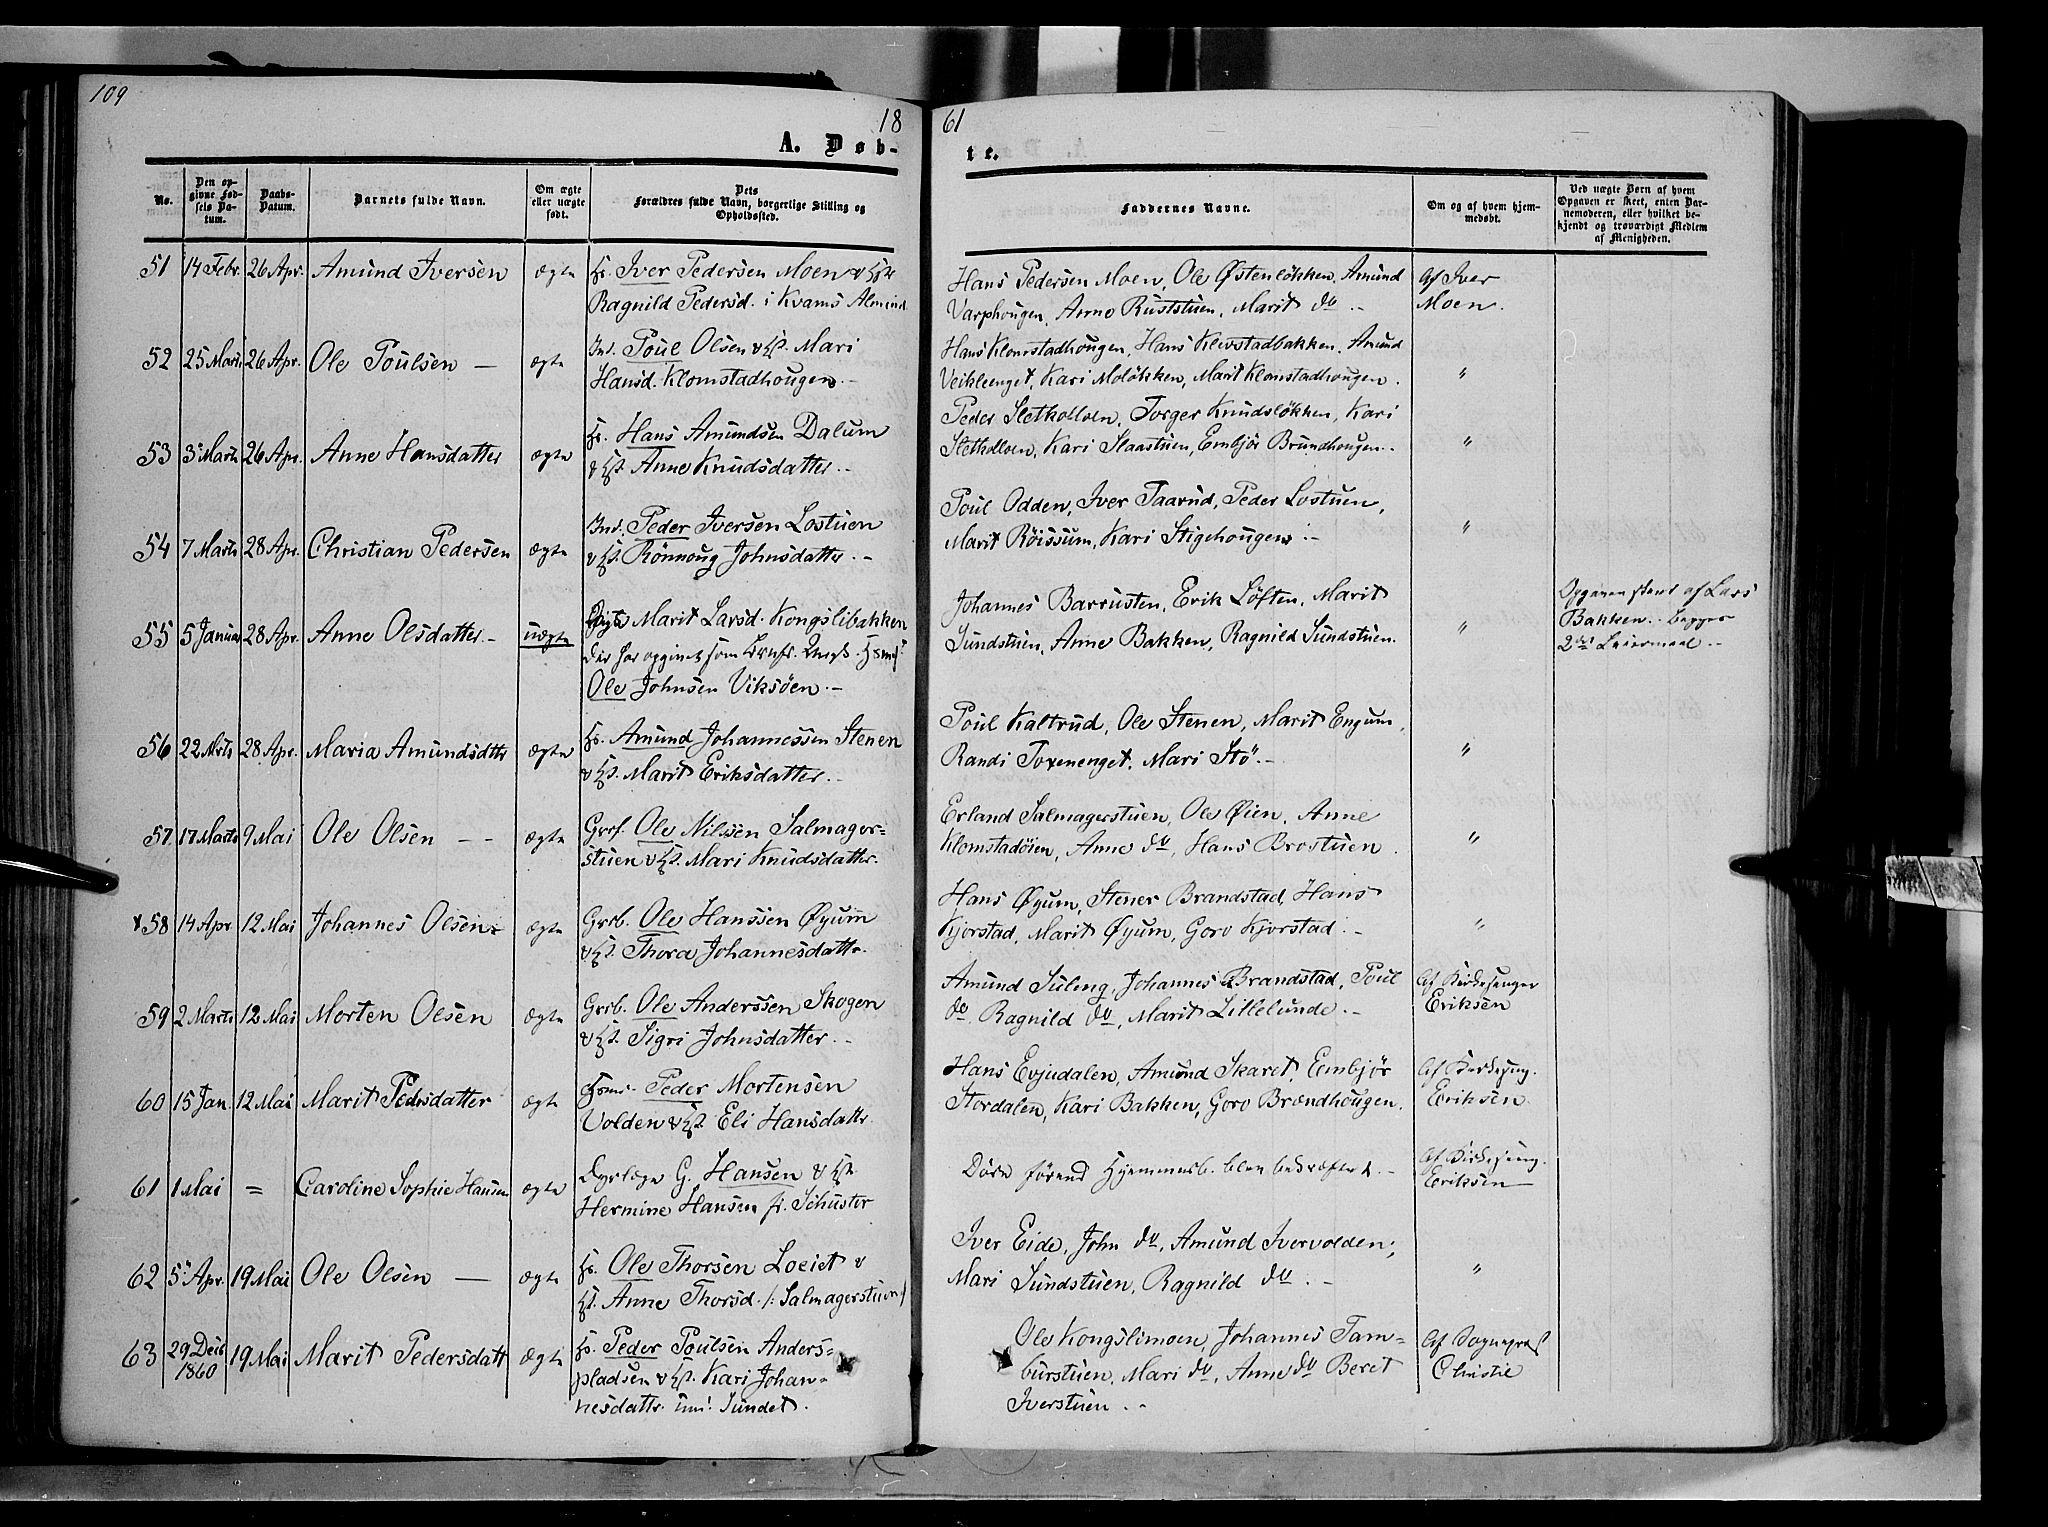 109
18
61
A. Døb-
te.
No.
Den op-
givne Fød-
sels Da-
tum.
Daabs-
Datum.
Barnets fulde Navn.
Om ægte
eller uægte
født.
Dets
Forældres fulde Navn, borgerlige Stilling og
Opholdssted.
Faddernes Navne.
Om og af hvem hjem-
medøbt.
Ved uægte Børn af hvem
Opgaven er skeet, enten Bar-
nemoderen, eller hvilket be-
kjendt og troværdigt Medlem
af Menigheden.
51 14 Febr. 26 Apr. Amund Iversen ægte
Iver Pedersen Moen
Ragnild Pedersd. i Kvams Alming
Hans Pedersen Moen, Ole Østenløkken, Amund
Varphougen, Anne Ruststuen, Marit do. -
Af Iver
Moen.
52 25 Marts 26 Apr. Ole Poulsen - ægte
Ind. Poul Olsen & Hst. Mari
Hansd. Klomstadhougen. -
Hans Klomstadhougen, Hans Klevstadbakken, Amund
Veikleenget, Kari Moløkken, Marit Klomstadhougen.
"
53 3 Marts 26 Apr. Anne Hansdatter ægte
Hans Amundsen Dalum
& Hst. Anne Knudsdatter. -
Peder Sletkolloen, Torger Knudsløkken, Kari
Sletkolloen, Kari Slaastuen, Embjør Brundhougen. -
"
54 7 Marts 28 Apr. Christian Pedersen ægte
Ind. Peder Iversen Lostuen
& Hst. Rönnoug Johnsdatter. -
Poul Odden, Iver Taarud, Peder Lostuen,
Marit Röissum, Kari Stigehougen. -
"
55 5 Januar 28 Apr. Anne Olsdatter - uægte
Pige Marit Larsd. Kongslibakken
der har opgivet som Brnfr. Ungk.
Ole Johnsen Viksøen. -
Johannes Barrusten, Erik Løften, Marit
Sundstuen, Anne Bakken, Ragnild Sundstuen.
"
Opgaven skeet af Lars
Bakken. Begges
2det Leiermaal. -
56 22 Mrts 28 Apr. Maria Amundsdttr ægte
Amund Johannessen Stenen
& Hst. Marit Eriksdatter. -
Poul Kaltrud, Ole Stenen, Marit Engum,
Randi Toxenenget, Mari Stö. -
"
57 17 Marts 9 Mai Ole Olsen - - ægte
Ole Nilssen Salmager=
stuen & Hst. Mari Knudsdatter.
Erland Salmagerstuen, Ole Øien, Anne
Klomstadöien, Anne do, Hans Brostuen.
"
58 14 Apr 12 Mai Johannes Olsen ægte
Grb. Ole Hanssen Øyum
& Hst. Thora Johannesdattr.
Hans Øyum, Stener Brandstad, Hans
Kjorstad, Marit Øyum, Goro Kjorstad. -
"
59 2 Marts 12 Mai Morten Olsen ægte
Grb. Ole Anderssen Skogen
& Hst. Sigri Johnsdatter. -
Amund Suleng, Johannes Brandstad, Poul
do, Ragnild do, Marit Lillelunde. -
Af Kirkesanger
Eriksen
60 15 Jan. 12 Mai Marit Pedersdatter ægte
Peder Mortensen
Volden & Hst. Eli Hansdattr.
Hans Evjudalen, Amund Skaret, Embjør
Stordalen, Kari Bakken, Goro Brændhougen.
Af Kirkesang.
Eriksen.
61 1 Mai = Caroline Sophie Hansen ægte
Dyrlæge G. Hansen & Hst.
Hermine Hansen f. Schuster
Døde førend Hjemmedb. blev bekræftet. -
Af Kirkesang.
Eriksen
62 5 Apr. 19 Mai Ole Olsen - ægte
Ole Thorsen Loeiet &
Hst. Anne Thorsd. /: Salmagerstuen /
Iver Eide, John do, Amund Ivervolden,
Mari Sundstuen, Ragnild do. -
"
63 29 Decb 1860 19 Mai Marit Pedersdatt ægte
Peder Poulsen Anders=
pladsen & Hst. Kari Johan-
nesdattr. Sundet.
Ole Kongslimoen, Johannes Tam=
burstuen, Mari do, Anne do Beret
Iverstuen. -
Af Sognepræst
Christie